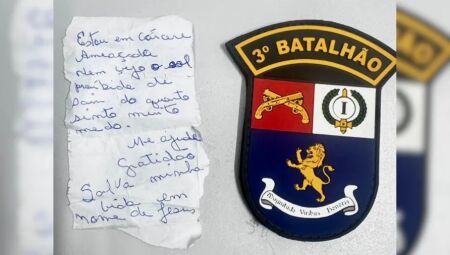 Estou em Cárcere
Ameaçada
Nem vejo o sol
proibida de
sair do quarto
sinto muito
medo.
Me ajude
Gratidão
Salva minha
vida em
nome de Jesus
3º BATALHÃO
I